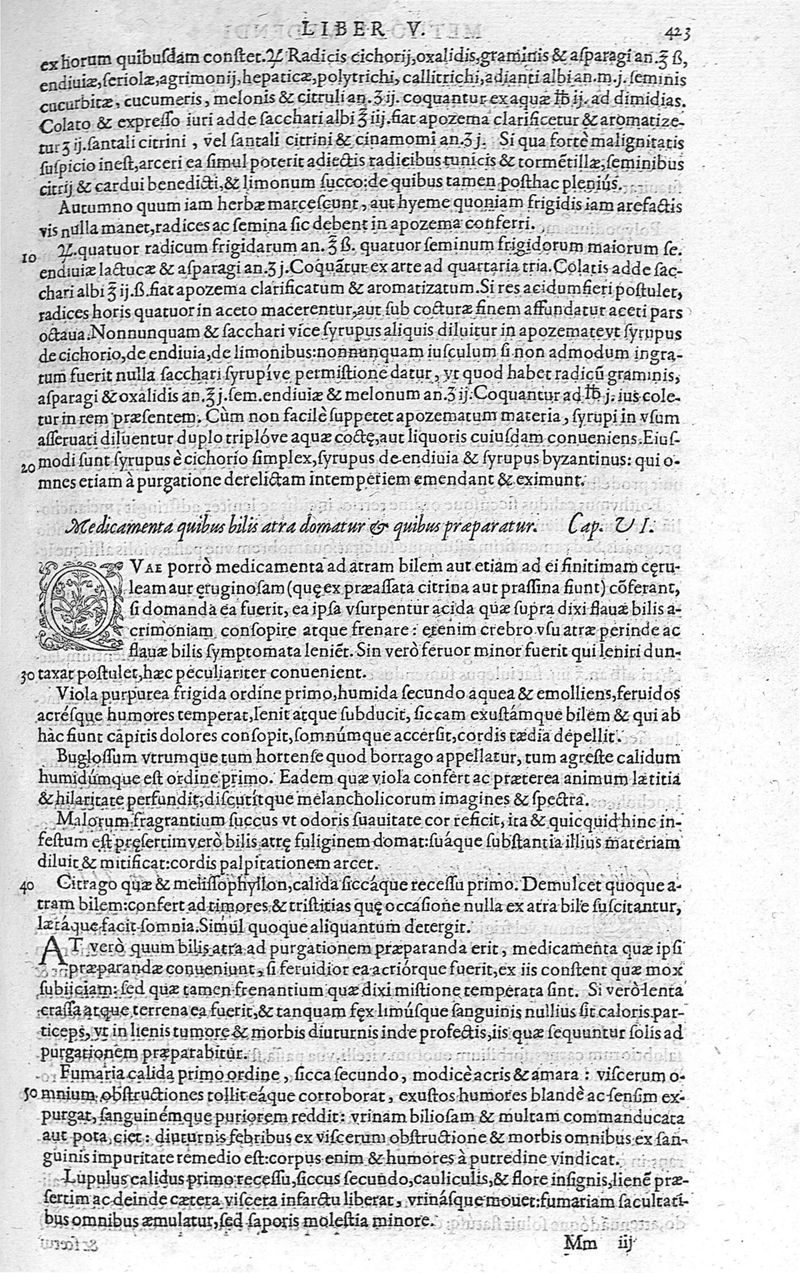 LIBER V. 423
ex horum quibuſdam conſtet. ℞ Radicis cichorij, oxalidis, graminis & aſparagi an. ℥ ß,
endiuiæ, ſeriolæ, agrimonij, hepaticæ, polytrichi, callitrichi, adianti albi an. m. j. ſeminis
cucurbitæ, cucumeris, melonis & citruli an. ʒ ij. coquantur ex aquæ ℔ ij. ad dimidias.
Colato & expreſſo iuri adde ſacchari albi ℥ iij. fiat apozema clarificetur & aromatize-
tur ʒ ij. ſantali citrini, vel ſantali citrini & cinamomi an. ʒ j. Si qua fortè malignitatis
ſuſpicio ineſt, arceri ea ſimul poterit adiectis radicibus tunicis & tormẽtillæ, ſeminibus
citrij & cardui benedicti, & limonum ſucco: de quibus tamen poſthac pleniùs.
Autumno quum iam herbæ marceſcunt, aut hyeme quoniam frigidis iam arefactis
vis nulla manet, radices ac ſemina ſic debent in apozema conferri.
10 ℞. quatuor radicum frigidarum an. ℥ ß. quatuor ſeminum frigidorum maiorum ſe.
endiuiæ lactucæ & aſparagi an. ʒ j. Coquãtur ex arte ad quartaria tria. Colatis adde ſac-
chari albi ℥ ij. ß. fiat apozema clarificatum & aromatizatum. Si res acidum fieri poſtulet,
radices horis quatuor in aceto macerentur, aut ſub cocturæ finem affundatur aceti pars
octaua. Nonnunquam & ſacchari vice ſyrupus aliquis diluitur in apozemate vt ſyrupus
de cichorio, de endiuia, de limonibus: nonnunquam iuſculum ſi non admodum ingra-
tum fuerit nulla ſacchari ſyrupíve permiſtione datur, vt quod habet radicũ graminis,
aſparagi & oxalidis an. ℥ j. ſem. endiuiæ & melonum an. ʒ ij. Coquantur ad ℔ j. ius cole-
tur in rem præſentem. Cùm non facilè ſuppetet apozematum materia, ſyrupi in vſum
aſſeruati diluentur duplo triplóve aquæ coctę, aut liquoris cuiuſdam conueniens. Eiuſ-
20 modi ſunt ſyrupus è cichorio ſimplex, ſyrupus de endiuia & ſyrupus byzantinus: qui o-
mnes etiam à purgatione derelictam intemperiem emendant & eximunt.
Medicamenta quibus bilis atra domatur & quibus præparatur. Cap. VI.
QVAE porrò medicamenta ad atram bilem aut etiam ad ei finitimam cęru-
leam aut ęruginoſam (quę ex præaſſata citrina aut praſſina fiunt) cõferant,
ſi domanda ea fuerit, ea ipſa vſurpentur acida quæ ſupra dixi flauæ bilis a-
crimoniam conſopire atque frenare: etenim crebro vſu atræ perinde ac
flauæ bilis ſymptomata leniẽt. Sin verò feruor minor fuerit qui leniri dun-
30 taxat poſtulet, hæc peculiariter conuenient.
Viola purpurea frigida ordine primo, humida ſecundo aquea & emolliens, feruidos
acréſque humores temperat, lenit atque ſubducit, ſiccam exuſtámque bilem & qui ab
hàc fiunt capitis dolores conſopit, ſomnúmque accerſit, cordis tædia depellit.
Bugloſſum vtrumque tum hortenſe quod borrago appellatur, tum agreſte calidum
humidúmque eſt ordine primo. Eadem quæ viola confert ac præterea animum lætitia
& hilaritate perfundit, diſcutítque melancholicorum imagines & ſpectra.
Malorum fragrantium ſuccus vt odoris ſuauitate cor reficit, ita & quicquid hinc in-
feſtum eſt pręſertim verò bilis atrę fuliginem domat: ſuáque ſubſtantia illius materiam
diluit & mitificat: cordis palpitationem arcet.
40 Citrago quæ & meliſſophyllon, calida ſiccáque receſſu primo. Demulcet quoque a-
tram bilem: confert ad timores & triſtitias quę occaſione nulla ex atra bile ſuſcitantur,
lætáque facit ſomnia. Simul quoque aliquantum detergit.
AT verò quum bilis atra ad purgationem præparanda erit, medicamenta quæ ipſi
præparandæ conueniunt, ſi feruidior ea acriórque fuerit, ex iis conſtent quæ mox
ſubiiciam: ſed quæ tamen frenantium quæ dixi miſtione temperata ſint. Si verò lenta
craſſa atque terrena ea fuerit, & tanquam fęx limúſque ſanguinis nullius ſit caloris par-
ticeps, vt in lienis tumore & morbis diuturnis inde profectis, iis quæ ſequuntur ſolis ad
purgationem præparabitur.
Fumaria calida primo ordine, ſicca ſecundo, modicè acris & amara: viſcerum o-
50 mnium obſtructiones tollit eáque corroborat, exuſtos humores blandè ac ſenſim ex-
purgat, ſanguinémque puriorem reddit: vrinam bilioſam & multam commanducata
aut pota, ciet: diuturnis febribus ex viſcerum obſtructione & morbis omnibus ex ſan-
guinis impuritate remedio eſt: corpus enim & humores à putredine vindicat.
Lupulus calidus primo receſſu, ſiccus ſecundo, cauliculis, & flore inſignis, lienẽ præ-
ſertim ac deinde cætera viſcera infarctu liberat, vrináſque mouet: fumariam facultati-
bus omnibus æmulatur, ſed ſaporis moleſtia minore.
Mm iij